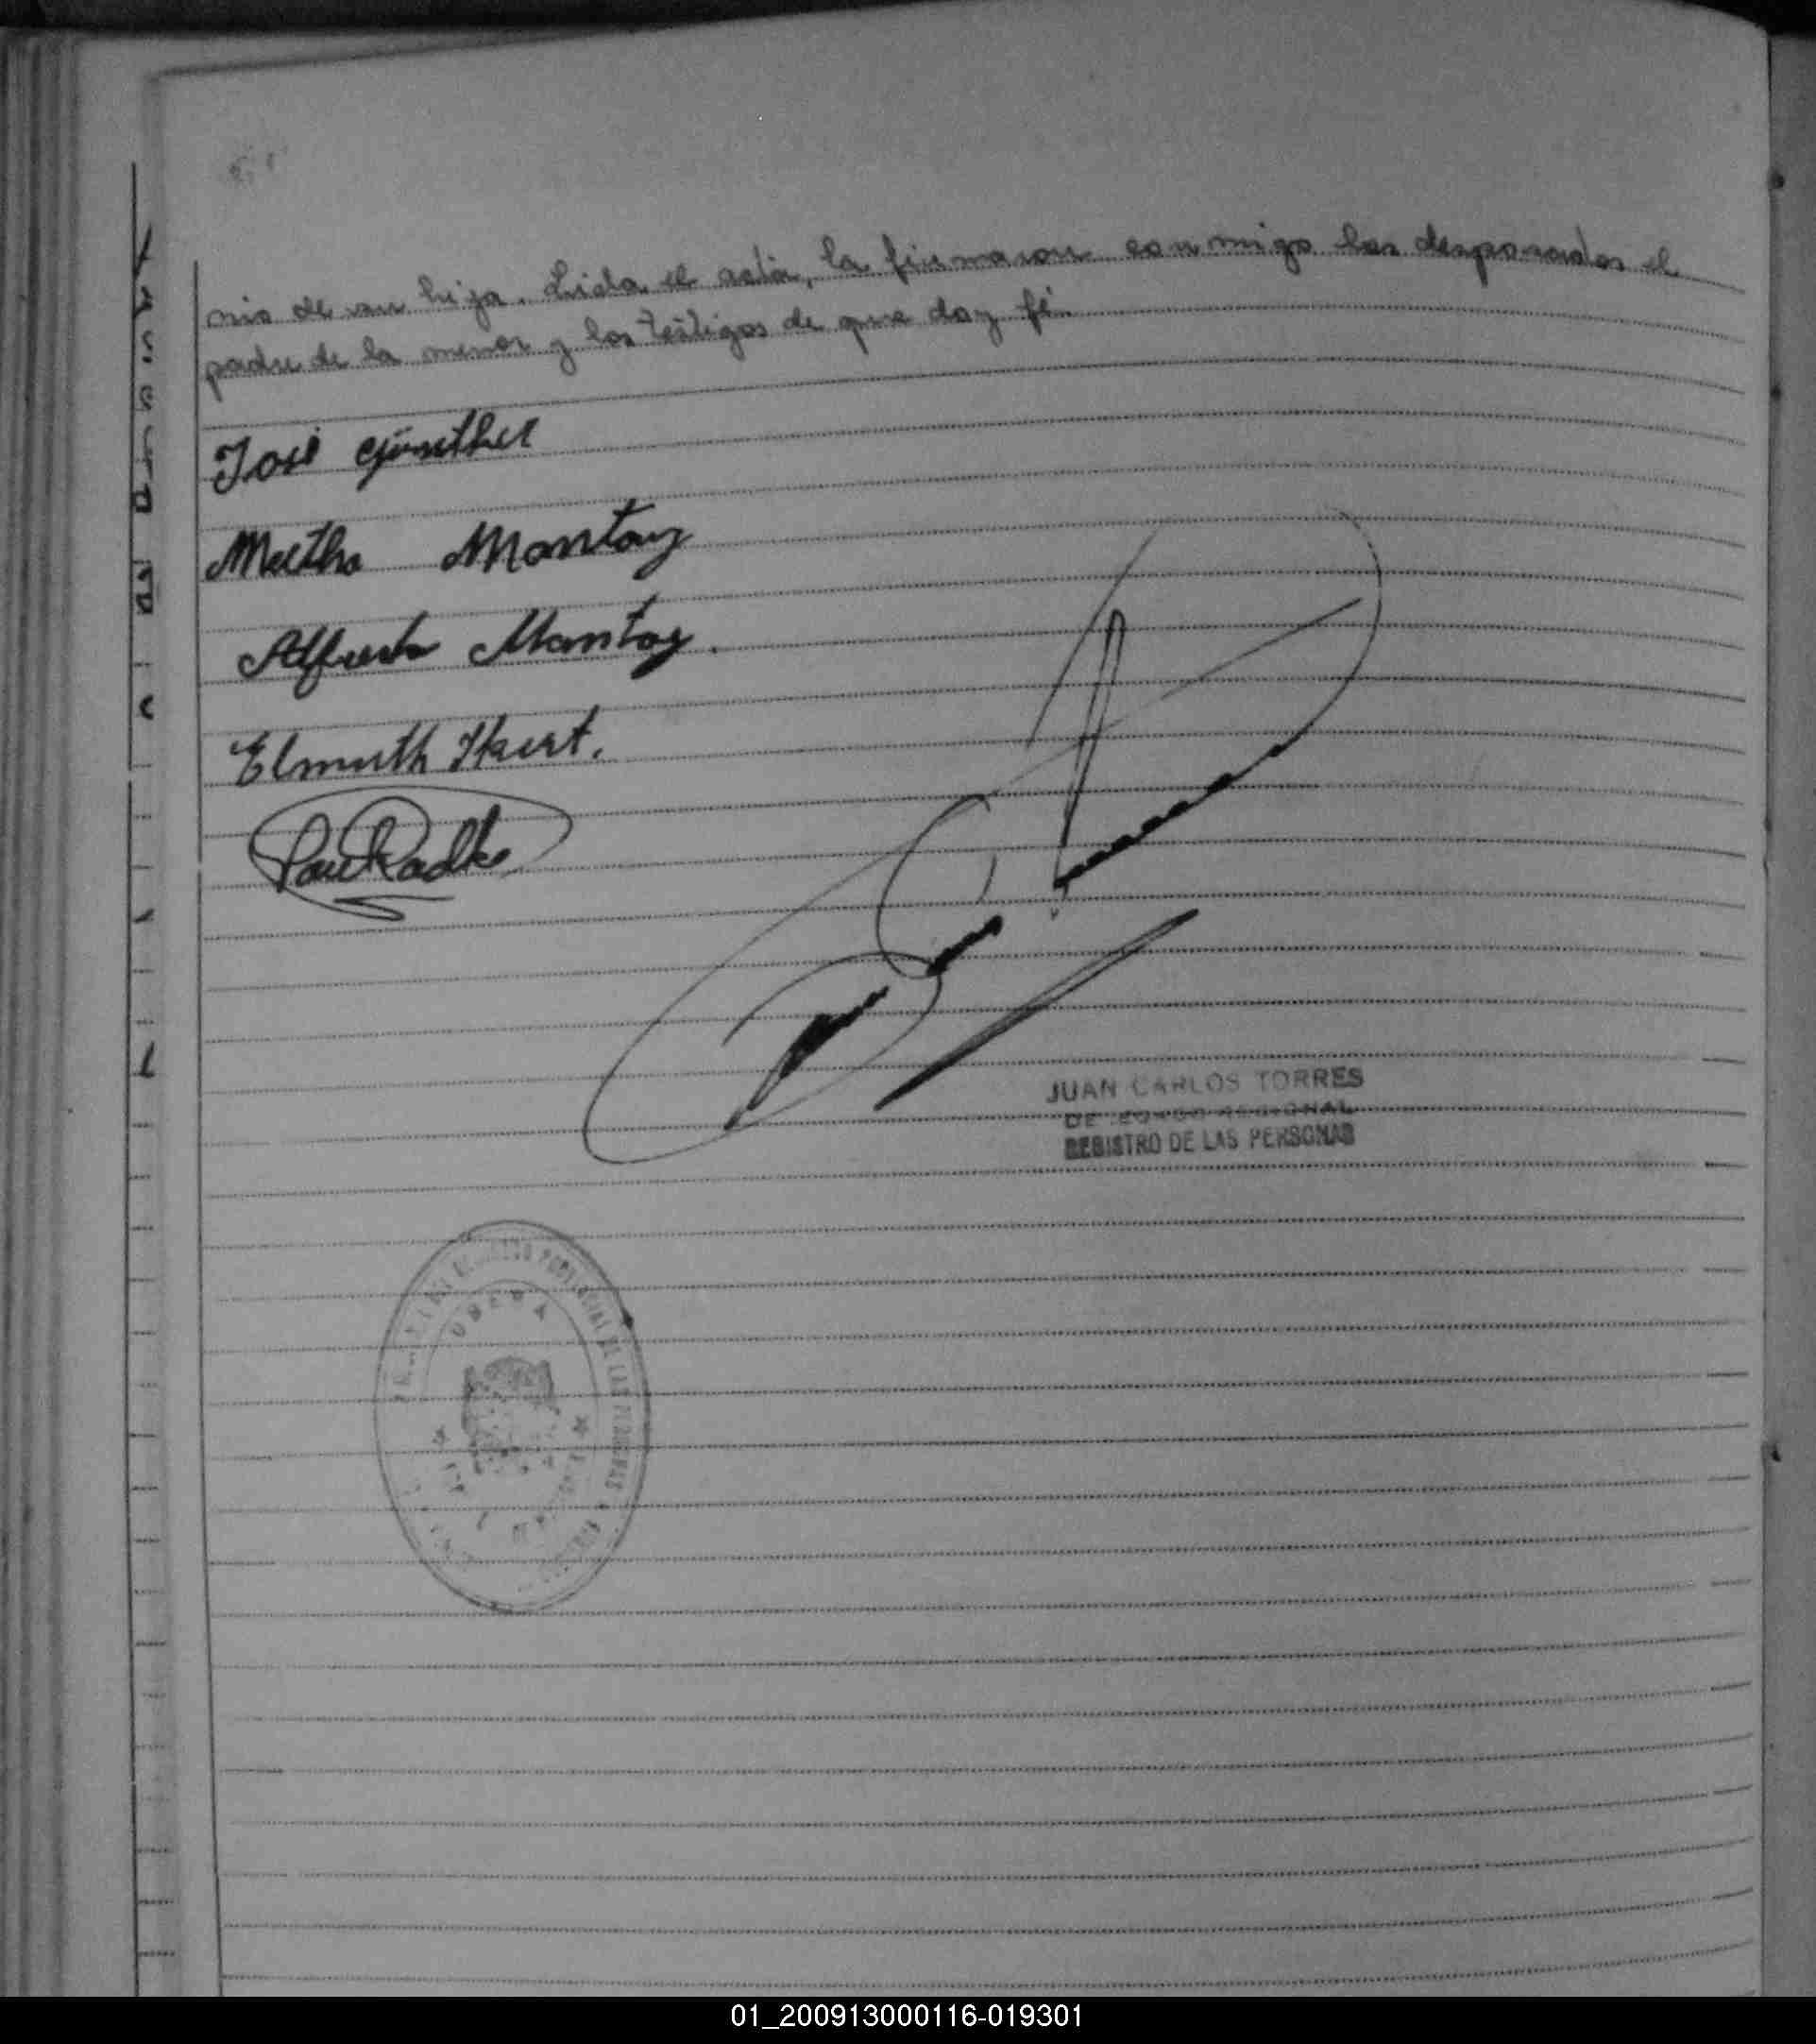 nio de su hija. Leída el acta, la firmaron conmigo los desposados el
padre de la menor y los testigos de que doy fé.
José Günther
Meetha Montay
Alfredo Montay.
Elmuth
JUAN CARLOS TORRES
DE REGIONAL
REGISTRO DE LAS PERSONAS
PROVINCIAL DE LAS PERSONAS
OBERA
01_200913000116-019301